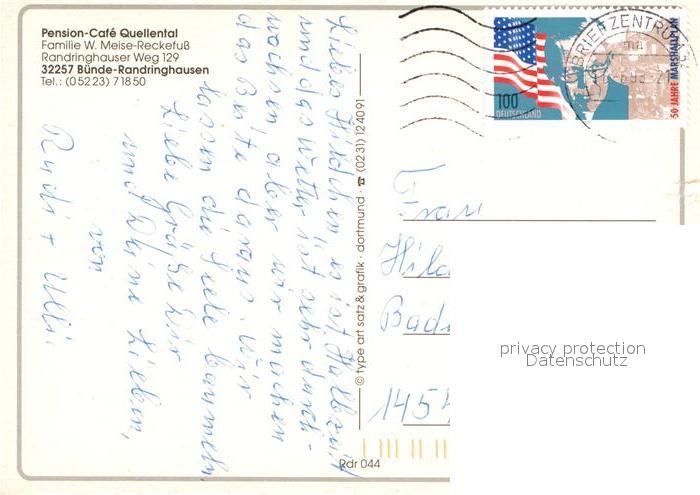 Pension-Café Quellental
Familie W. Meise-Reckefuß
Randringhauser Weg 129
32257 Bünde-Randringhausen
Tel.: (0 52 23) 7 18 50
Liebes Hildchen, es ist Halbzeit
und das Wetter ist sehr durch-
wachsen aber wir machen
das Beste daraus. Wir
lassen die Seele baumeln.
Liebe Grüße Dir
und Deine Lieben,
von
Rudi + Ulli.
© type art satz & grafik · dortmund · ☎ (02 31) 12 40 91
100
DEUTSCHLAND
50 JAHRE MARSHALLPLAN
BRIEFZENTRUM
Frau
Hild
Bad
145
privacy protection
Datenschutz
Rdr 044